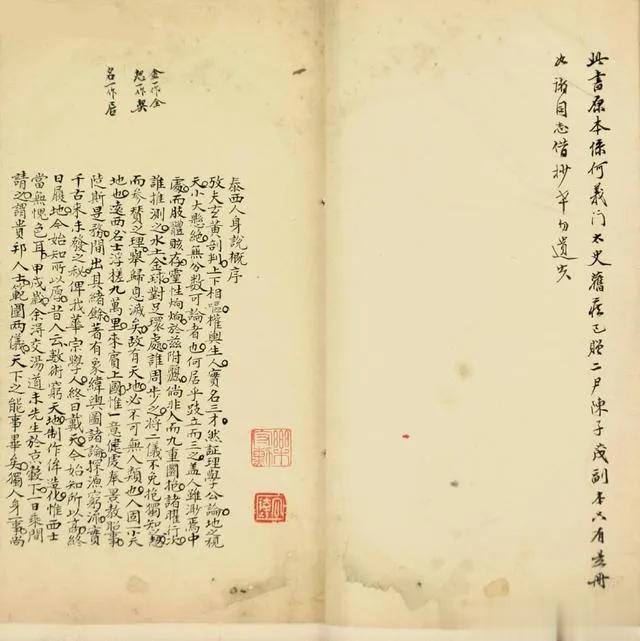 此書原本係何義门太史舊藏已贈二尸陳子茂副本只有壹冊
如諸同志借抄幸勿遺失
金一作全
恕一作契
名一作居
泰西人身說概序
攷夫玄黃剖判上下相嘔權輿生人實名三才然証理學公論地之視
天小大懸絕無分數可論者也何居乎跂立而三之蓋人雖渺焉中
處而肢體賅存靈性炯炯於茲附麗倘非人而九重圜抱諸曜行次
誰推測之水土金球對足環處誰周步之將二儀不免抱獨知之
而參贊之理舉歸息滅矣故有天地必不可無人類也人固一小天
地也遠西名士浮槎九萬里來賓上國惟一意虔奉景教昭事
陡斯是務間出其緒餘著有象緯輿圖諸論探源窮流實
千古來未發之秘俾我華宗學人終日戴天今始知所以高終
日履地今始知所以厚昔人云數術窮天地制作侔造化惟西士
當無愧色耳甲戌歲余得交湯道未先生於京轂下一日乘間
請之謂貴邦人士範圍兩儀天下之能事畢矣獨人身一事尚